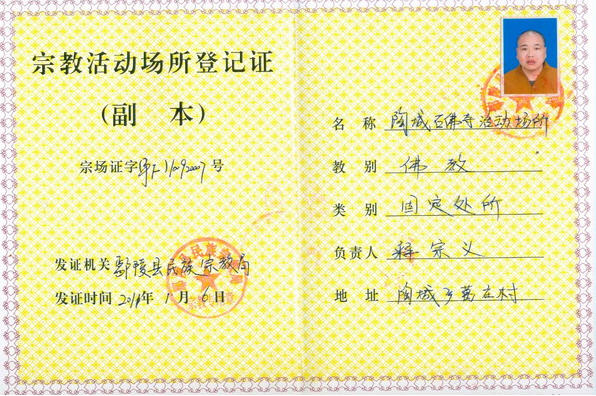 宗教活动场所登记证
(副 本)
宗场证字 号
发证机关 鄢陵县民族宗教局
发证时间 年 1 月 6 日
名 称 陶城石佛寺活动场所
教 别 佛教
类 别 固定处所
负责人 释宗义
地 址 陶城乡 村